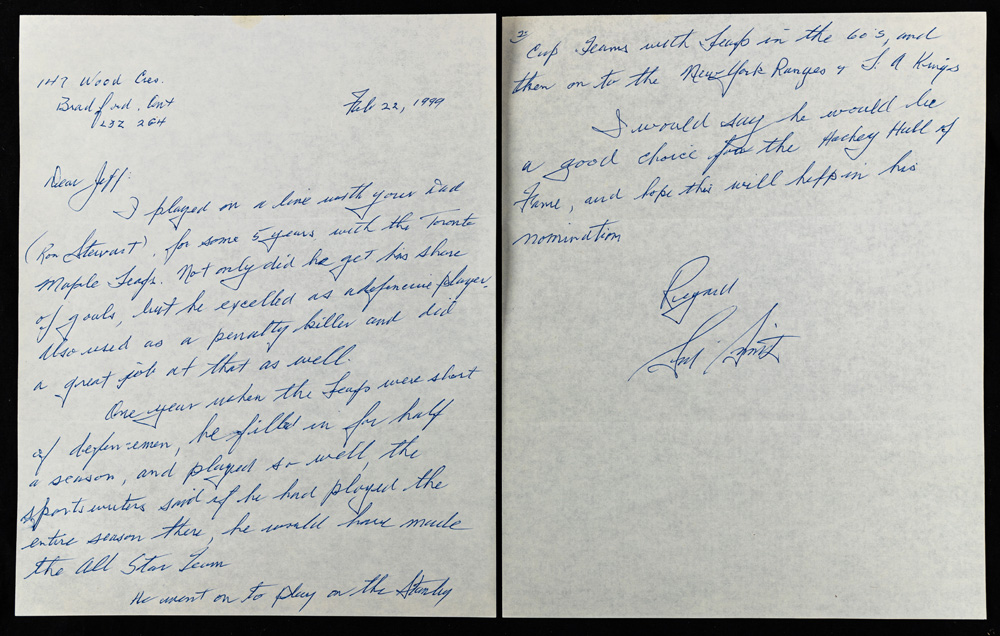 147 Wood Cres.
Bradford, Ont
L3Z 2G4
Feb 22, 1999
Dear Jeff:
I played on a line with your Dad
(Ron Stewart), for some 5 years with the Toronto
Maple Leafs. Not only did he get his share
of goals, but he excelled as a defensive player.
Also used as a penalty killer and did
a great job at that as well.
One year when the Leafs were short
of defencemen, he filled in for half
a season, and played so well, the
sportswriters said if he had played the
entire season there, he would have made
the All Star Team
He went on to play on the Stanley
2
Cup Teams with Leafs in the 60's, and
then on to the New York Rangers & L. A Kings
I would say he would be
a good choice for the Hockey Hall of
Fame, and hope this will help in his
nomination
Regards
Sid Smith